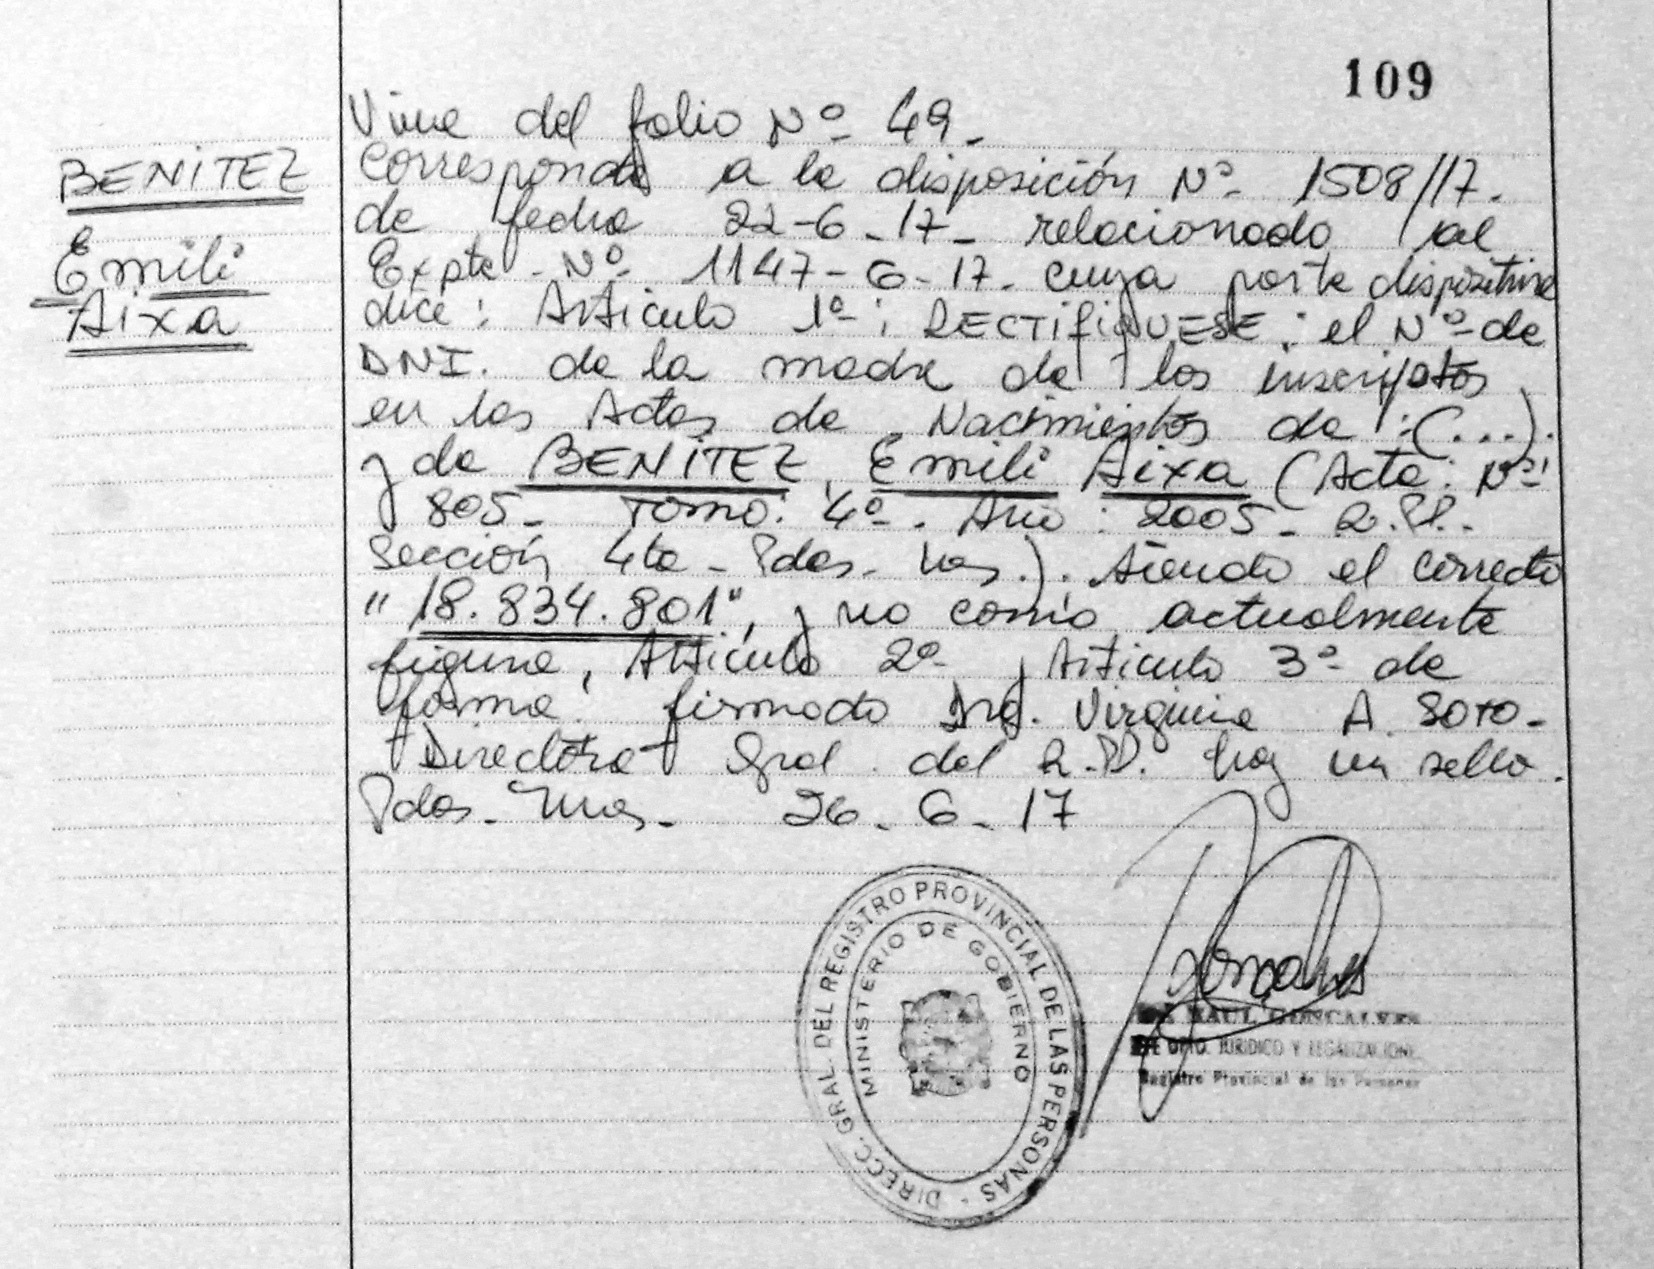 109
BENITEZ
Emili
Aixa
Viene del folio Nº 49.
Corresponde a la disposición Nº 1508/17.
de fecha 22-6-17- relacionado al
Expte. Nº 1147-G-17. cuya parte dispositiva
dice: Articulo 1º: RECTIFIQUESE: el Nº de
DNI. de la madre de los inscriptos
en las Actas de Nacimientos de: (...).
y de BENITEZ, Emili Aixa (Acta: Nº
805- Tomo: 4º. Año: 2005- R.P.P.-
Sección 4ta - Pdas. Mnes.). Siendo el correcto
"18.834.801", y no como actualmente
figura, Articulo 2º y Articulo 3º de
forma. firmado Virginia A SOTO-
Directora Gral. del R.P.P. hay un sello.
Pdas. Mnes. 26-6-17
DIRECC. GRAL. DEL REGISTRO PROVINCIAL DE LAS PERSONAS -
MINISTERIO DE GOBIERNO
RAUL GONCALVES
DPTO. JURIDICO Y LEGALIZACIONES
Registro Provincial de las Personas